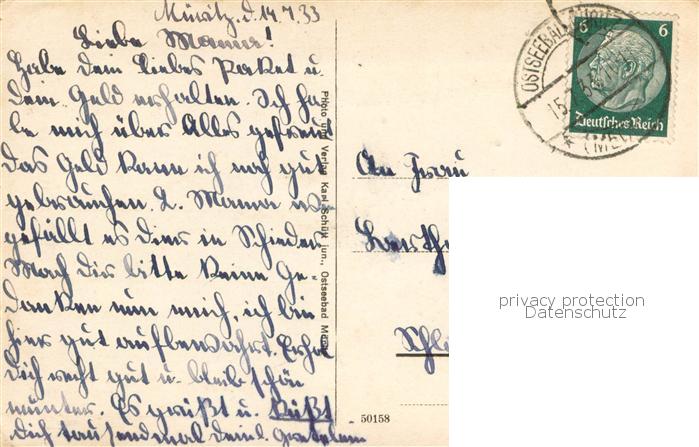 Müritz, d. 14.7.33
Liebe Mama!
Habe dein liebes Paket u.
dein Geld erhalten. Ich ha-
be mich über Alles gefreut
das Geld kann ich noch gut
gebrauchen. L. Mama wie
gefällt es dier in Schieder
Mach dir bitte keine Ge-
danken um mich, ich bin
hier gut aufbewahrt. Erhol
dich recht gut u. bleib schön
munter. Es grüßt u. küßt
dich tausendmal deine Gretelein
Photo und Verlag Karl Schütt jun., Ostseebad Müritz
50158
OSTSEEBAD
15.
(MECKL
6 6
Deutsches Reich
An Frau
Bertha
Schi
privacy protection
Datenschutz